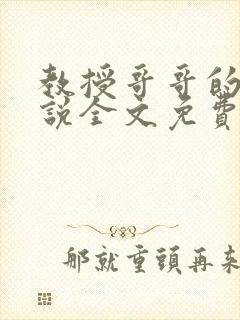 教授哥哥的
說全文免費
那就重頭再来